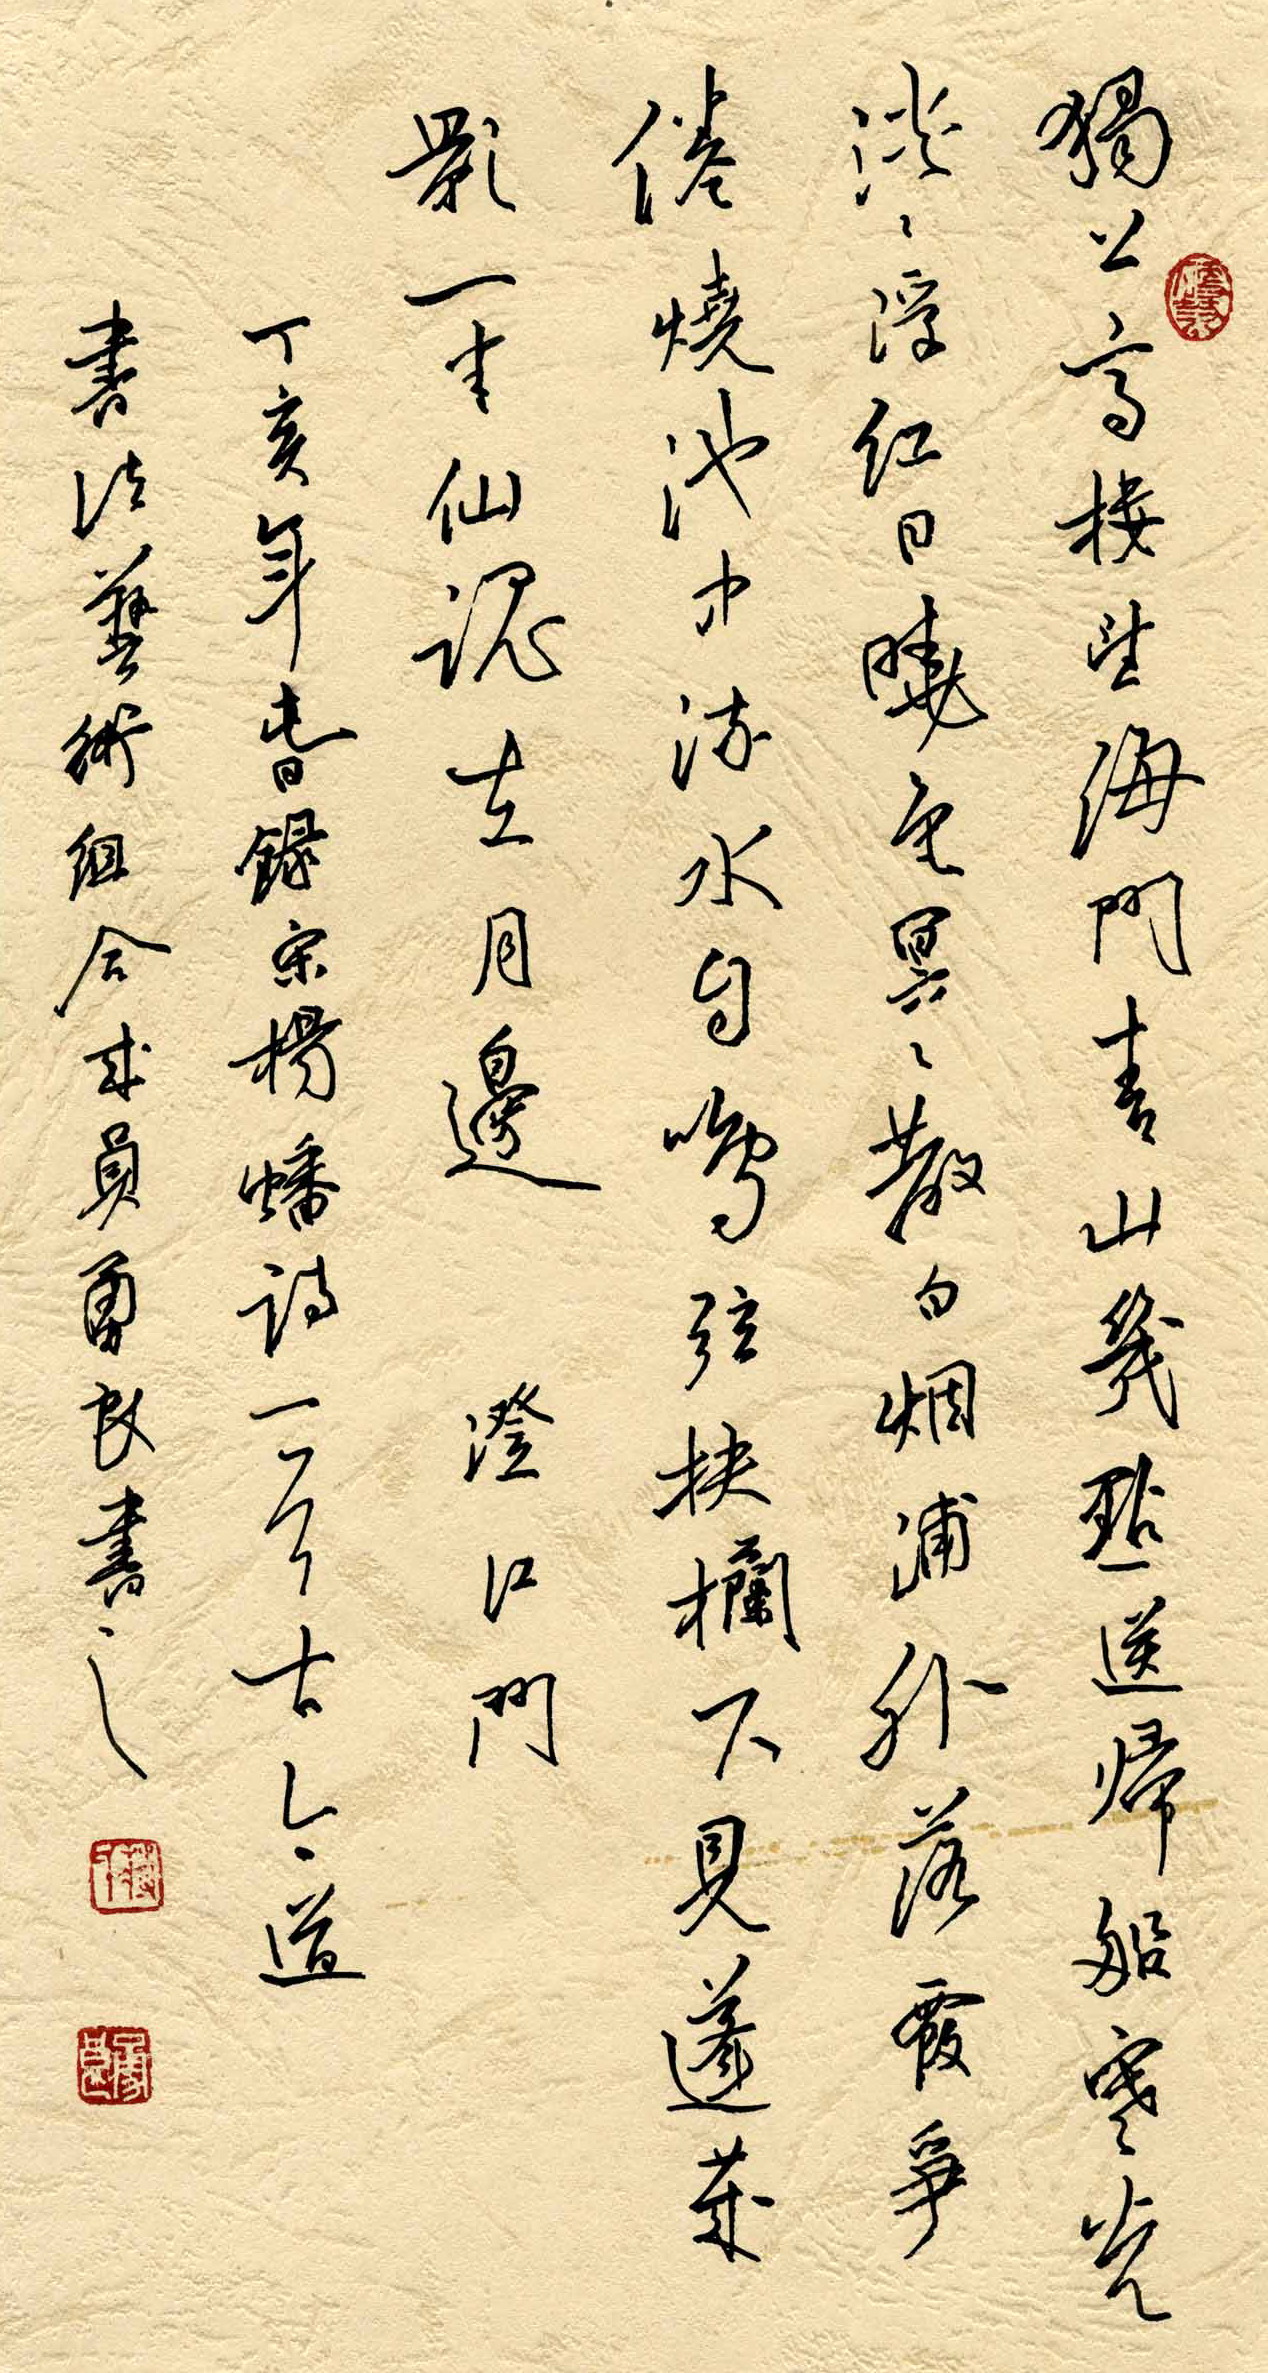 獨上高樓望海門青山幾點送歸船寒光
淡〻浮紅日曉色冥〻散白烟浦外落霞爭
倦燒池中流水自鳴弦扶欄不見蓬萊
影一半仙魂在月邊 澄江門
丁亥年春錄宋楊蟠詩一首古今道
書法藝術組合成員勇良書之